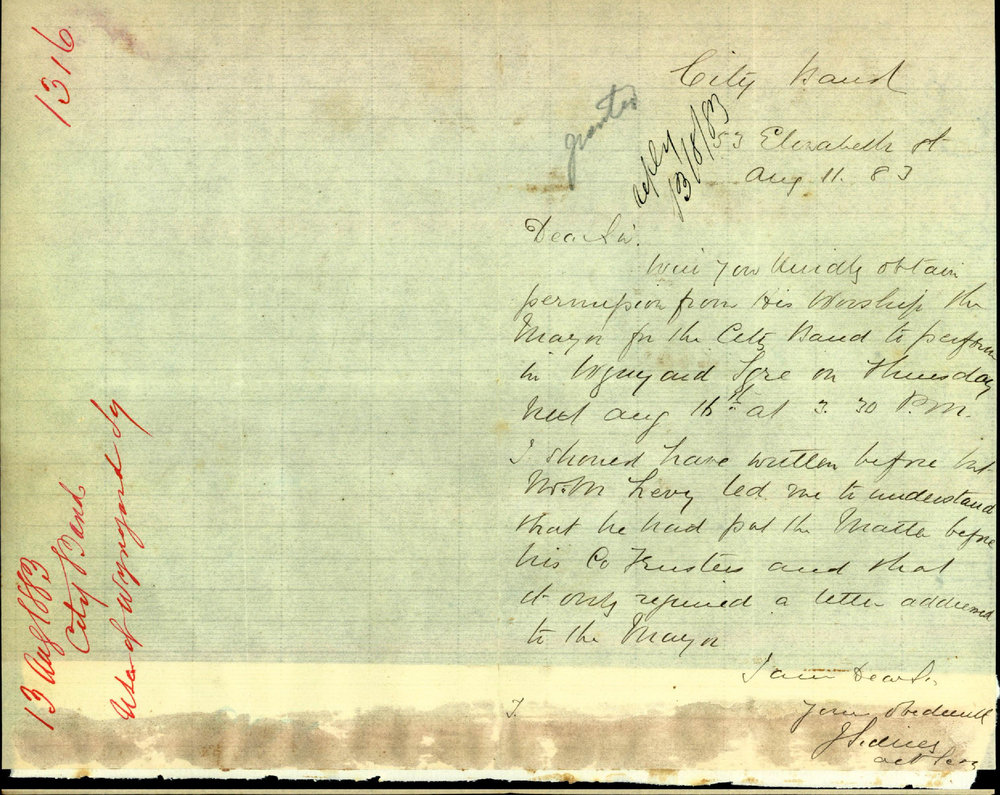 1316
13 Aug 1883
City Band
Use of Wynyard Sq
granted
reply
13/8/83
City Band
53 Elizabeth St
Aug 11. 83
Dear Sir.
Will you kindly obtain
permission from His Worship the
Mayor for the City Band to perform
in Wynyard Sqre on Thursday
next Aug 16th at 3.30 P.M.
I should have written before but
Mr. M Levy led me to understand
that he had put the Matter before
his Co Trustees and that
it only required a letter addressed
to the Mayor
I am Dear Sir
Your obedient